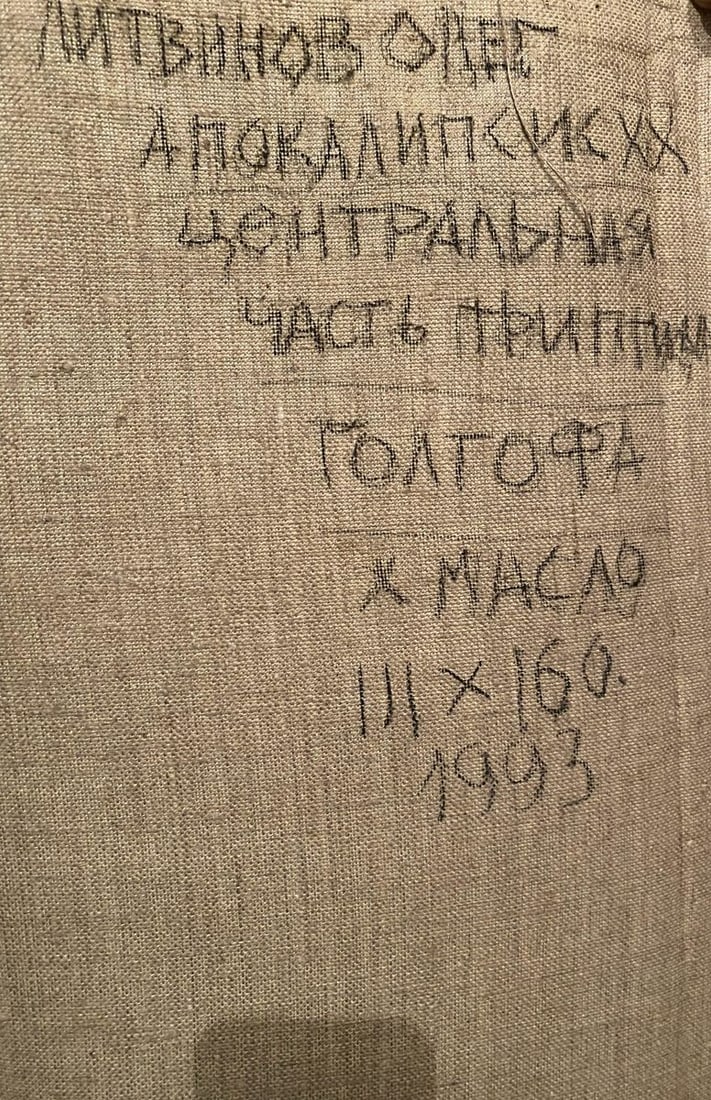 ЛИТВИНОВ ОЛЕГ
АПОКАЛИПСИС XX
ЦЕНТРАЛЬНАЯ
ЧАСТЬ ТРИПТИХА
ГОЛГОФА
Х МАСЛО
111 × 160.
1993